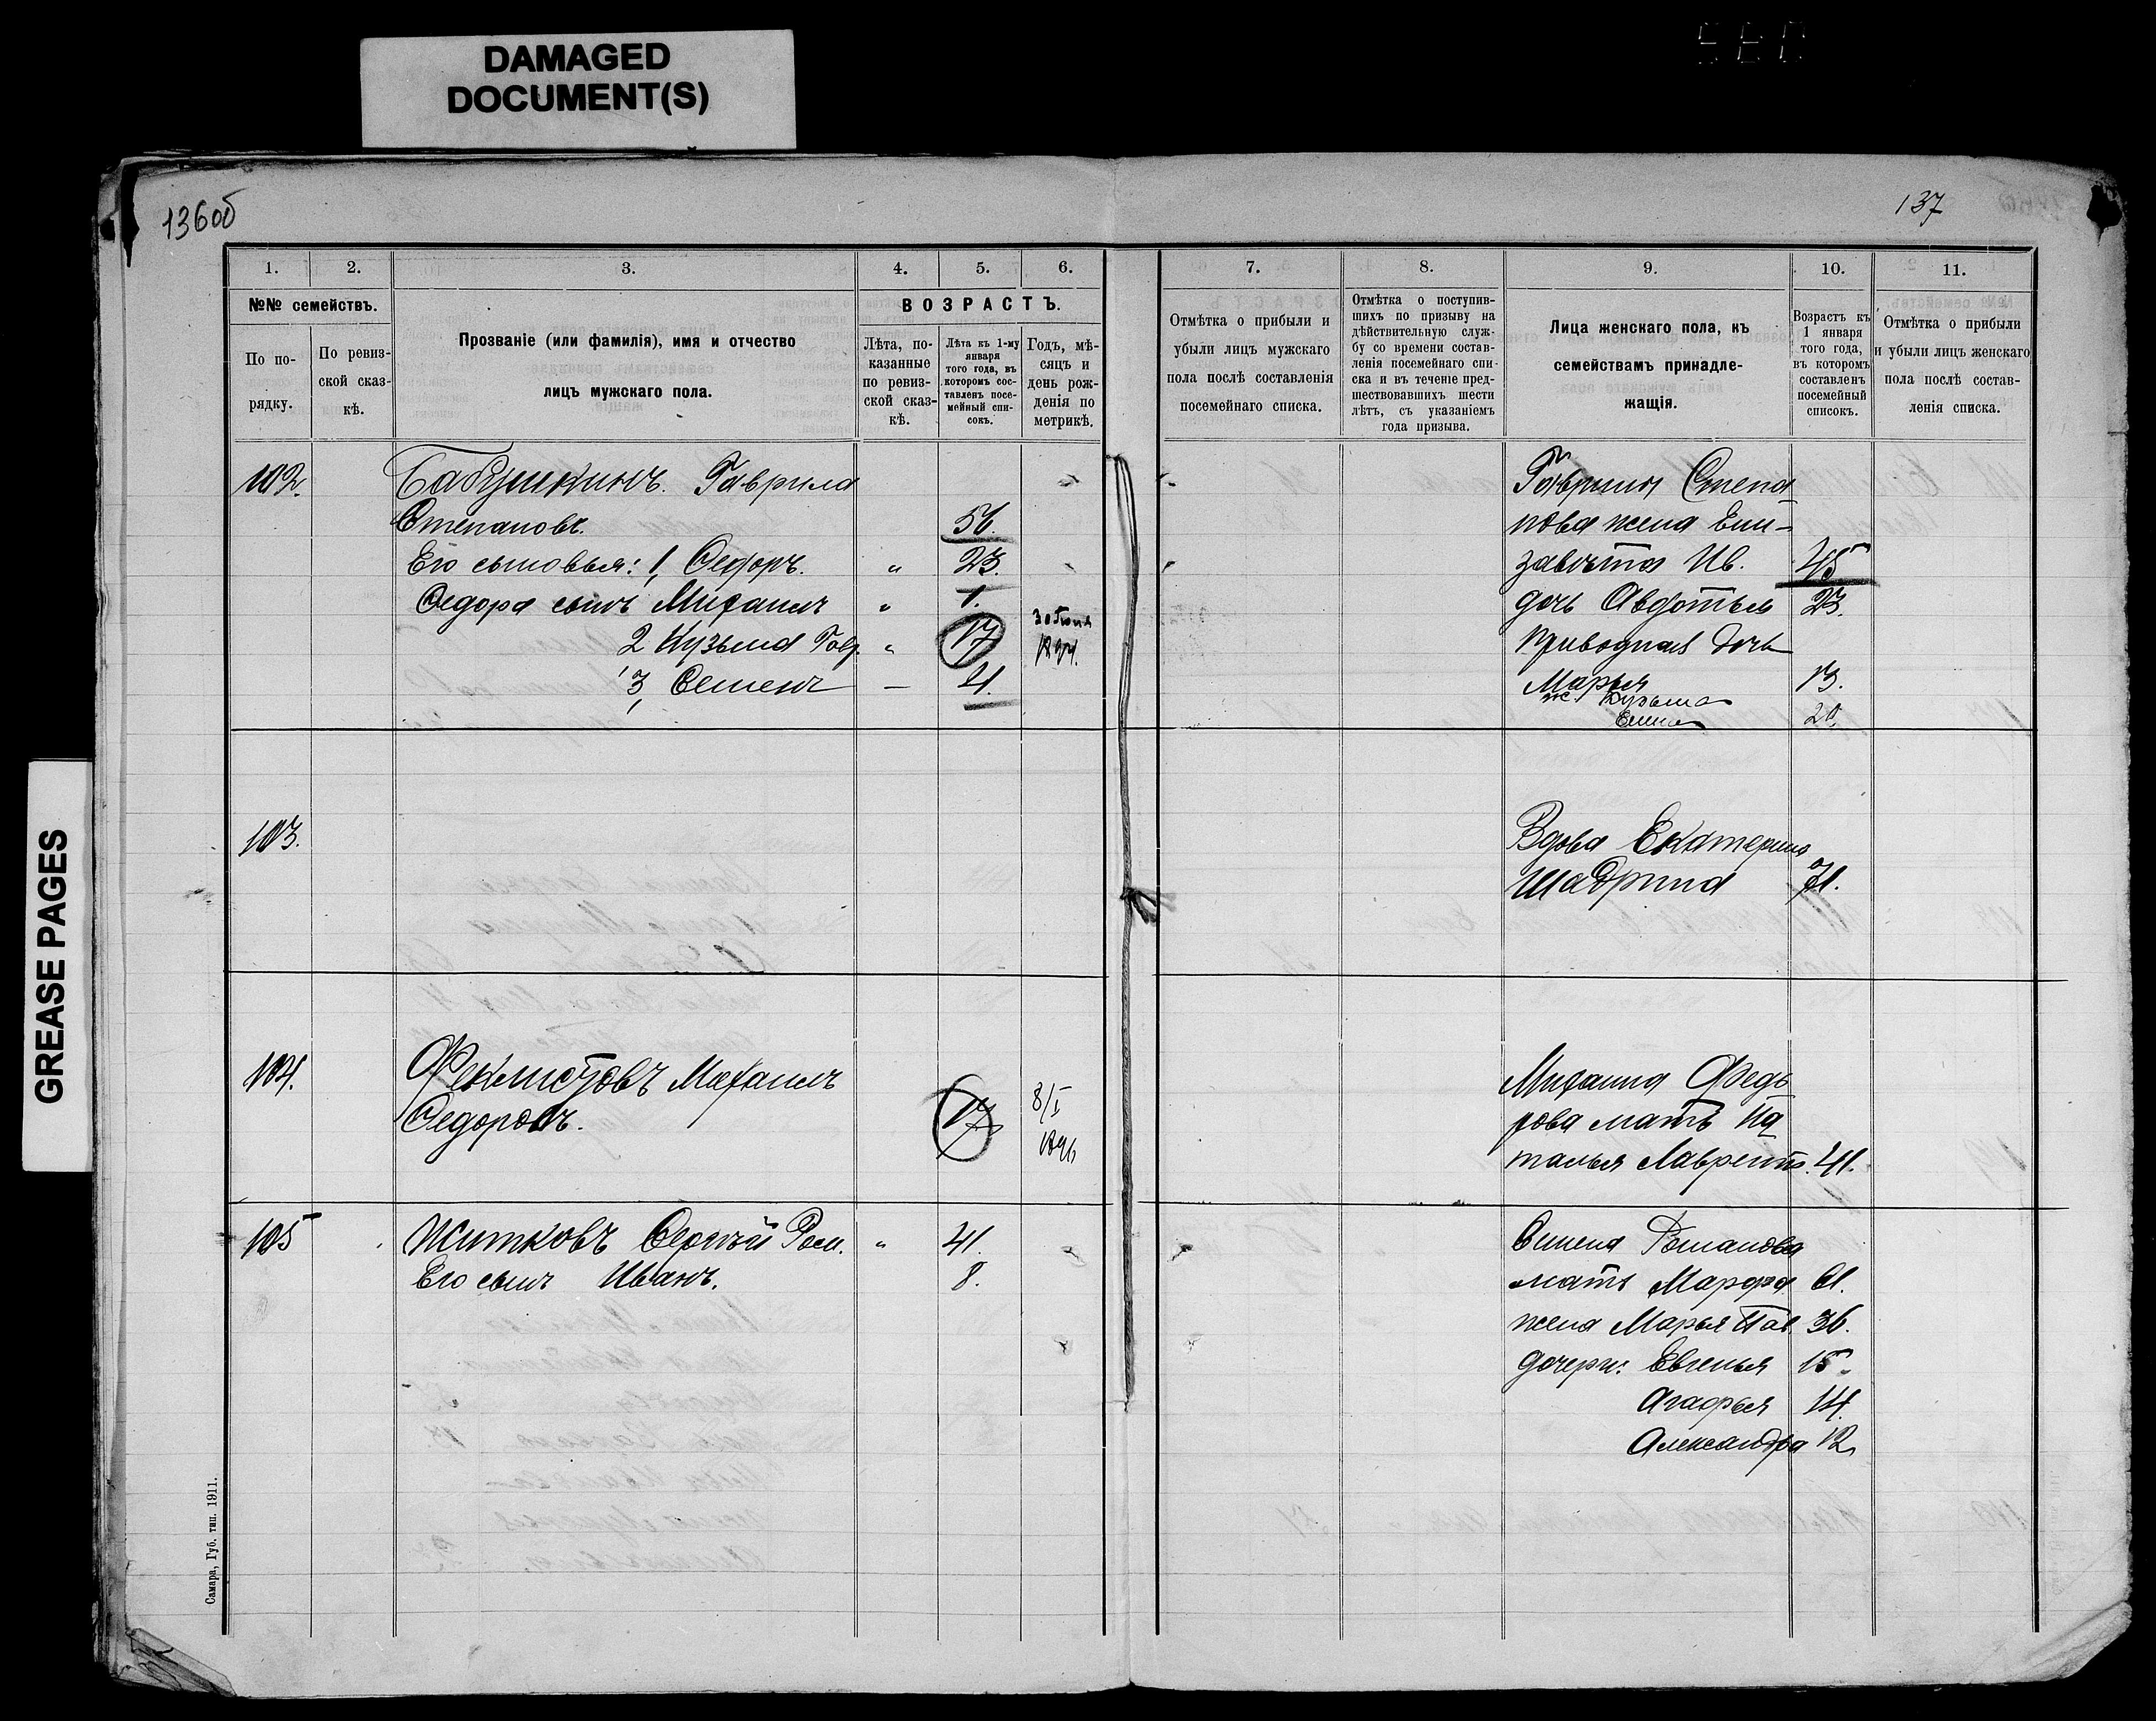 DAMAGED
DOCUMENT(S)
GREASE PAGES
136об
137
1.
2.
3.
4.
5.
6.
№№ семействъ.
По по-
рядку.
По ревиз-
ской сказ-
кѣ.
Прозваніе (или фамилія), имя и отчество
лицъ мужскаго пола.
ВОЗРАСТЪ.
Лѣта, по-
казанные
по ревиз-
ской сказ-
кѣ.
Лѣта къ 1-му
января
того года, въ
которомъ сос-
тавленъ посе-
мейный спи-
сокъ.
Годъ, мѣ-
сяцъ и
день рож-
денія по
метрикѣ.
7.
8.
9.
10.
11.
Отмѣтка о прибыли и
убыли лицъ мужскаго
пола послѣ составленія
посемейнаго списка.
Отмѣтка о поступив-
шихъ по призыву на
дѣйствительную служ-
бу со времени состав-
ленія посемейнаго спи-
ска и въ теченіе пред-
шествовавшихъ шести
лѣтъ, съ указаніемъ
года призыва.
Лица женскаго пола, къ
семействамъ принадле-
жащія.
Возрастъ къ
1 января
того года,
въ которомъ
составленъ
посемейный
списокъ.
Отмѣтка о прибыли
и убыли лицъ женскаго
пола послѣ состав-
ленія списка.
102. Бабушкинъ. Гаврила
Степановъ. 56.
Его сыновья: 1, Ѳедоръ. " 23.
Ѳедора сынъ Михаилъ " 1.
2 Кузьма Гавр. " 17
3, Семенъ — 4.
Гаврилы Степа
нова жена Ели-
завѣта Ив. 45
дочь Авдотья 23.
Приводная дочь
Марья 13.
ж. Кузьма
20.
103.
Вдова Екатерина
Шадрина 71.
104. Феклистовъ Михаилъ
Ѳедоровъ. 17 8/I
Михаила Федо
рова мать На
талья Лаврент. 41.
105 Житковъ Сергѣй Ром. " 41.
Его сынъ Иванъ. 8.
Романова
мать Марфа 61.
жена Марья Пав. 36.
дочери: Евгенья 15.
Агафья 14.
Александра 12
Самара, Губ. тип. 1911.